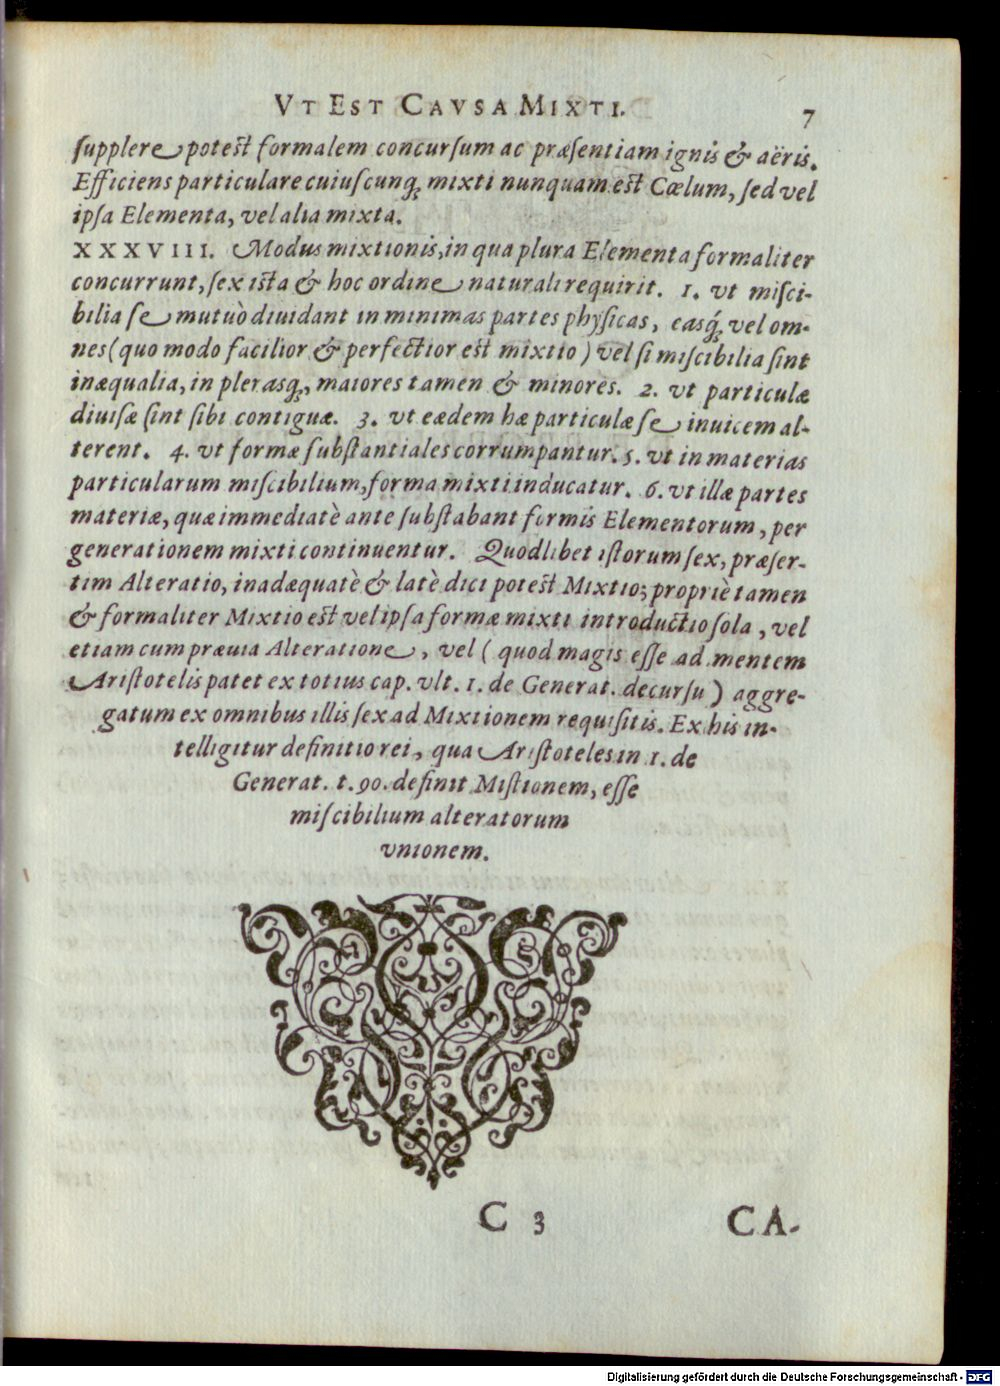 VT EST CAVSA MIXTI. 7
ſupplere poteſt formalem concurſum ac præſentiam ignis & aëris.
Efficiens particulare cuiuſcunq; mixti nunquam eſt Cœlum, ſed vel
ipſa Elementa, vel alia mixta.
XXXVIII. Modus mixtionis, in qua plura Elementa formaliter
concurrunt, ſex iſta & hoc ordine naturali requirit. 1. vt miſci-
bilia ſe mutuò diuidant in minimas partes phyſicas, easq́; vel om-
nes (quo modo facilior & perfectior eſt mixtio) vel ſi miſcibilia ſint
inæqualia, in plerasq;, maiores tamen & minores. 2. vt particulæ
diuiſæ ſint ſibi contiguæ. 3. vt eædem hæ particulæ ſe inuicem al-
terent. 4. vt formæ ſubſtantiales corrumpantur. 5. vt in materias
particularum miſcibilium, forma mixti inducatur. 6. vt illæ partes
materiæ, quæ immediatè ante ſubſtabant formis Elementorum, per
generationem mixti continuentur. Quodlibet iſtorum ſex, præſer-
tim Alteratio, inadæquatè & latè dici poteſt Mixtio; propriè tamen
& formaliter Mixtio eſt vel ipſa formæ mixti introductio ſola, vel
etiam cum præuia Alteratione, vel (quod magis eſſe ad mentem
Ariſtotelis patet ex totius cap. vlt. 1. de Generat. decurſu) aggre-
gatum ex omnibus illis ſex ad Mixtionem requiſitis. Ex his in-
telligitur definitio rei, qua Ariſtoteles in 1. de
Generat. t. 90. definit Miſtionem, eſſe
miſcibilium alteratorum
vnionem.
C 3 CA-
Digitalisierung gefördert durch die Deutsche Forschungsgemeinschaft - DFG